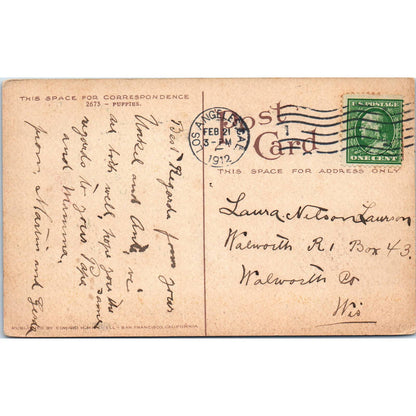 THIS SPACE FOR CORRESPONDENCE
2673 - PUPPIES.
Best Regards from your
Unkel and Ant, vi
are both well hope you the
same
regards to your Papa
and Mamma,
from Martin and
PUBLISHED BY EDWARD H. MITCHELL, SAN FRANCISCO, CALIFORNIA.
Post
Card
LOS ANGELES, CAL.
FEB 21
3-PM
1912
1
U.S. POSTAGE
ONE CENT
THIS SPACE FOR ADDRESS ONLY
Laura Nelson Laurson
Walworth R1 Box 43.
Walworth Co
Wis